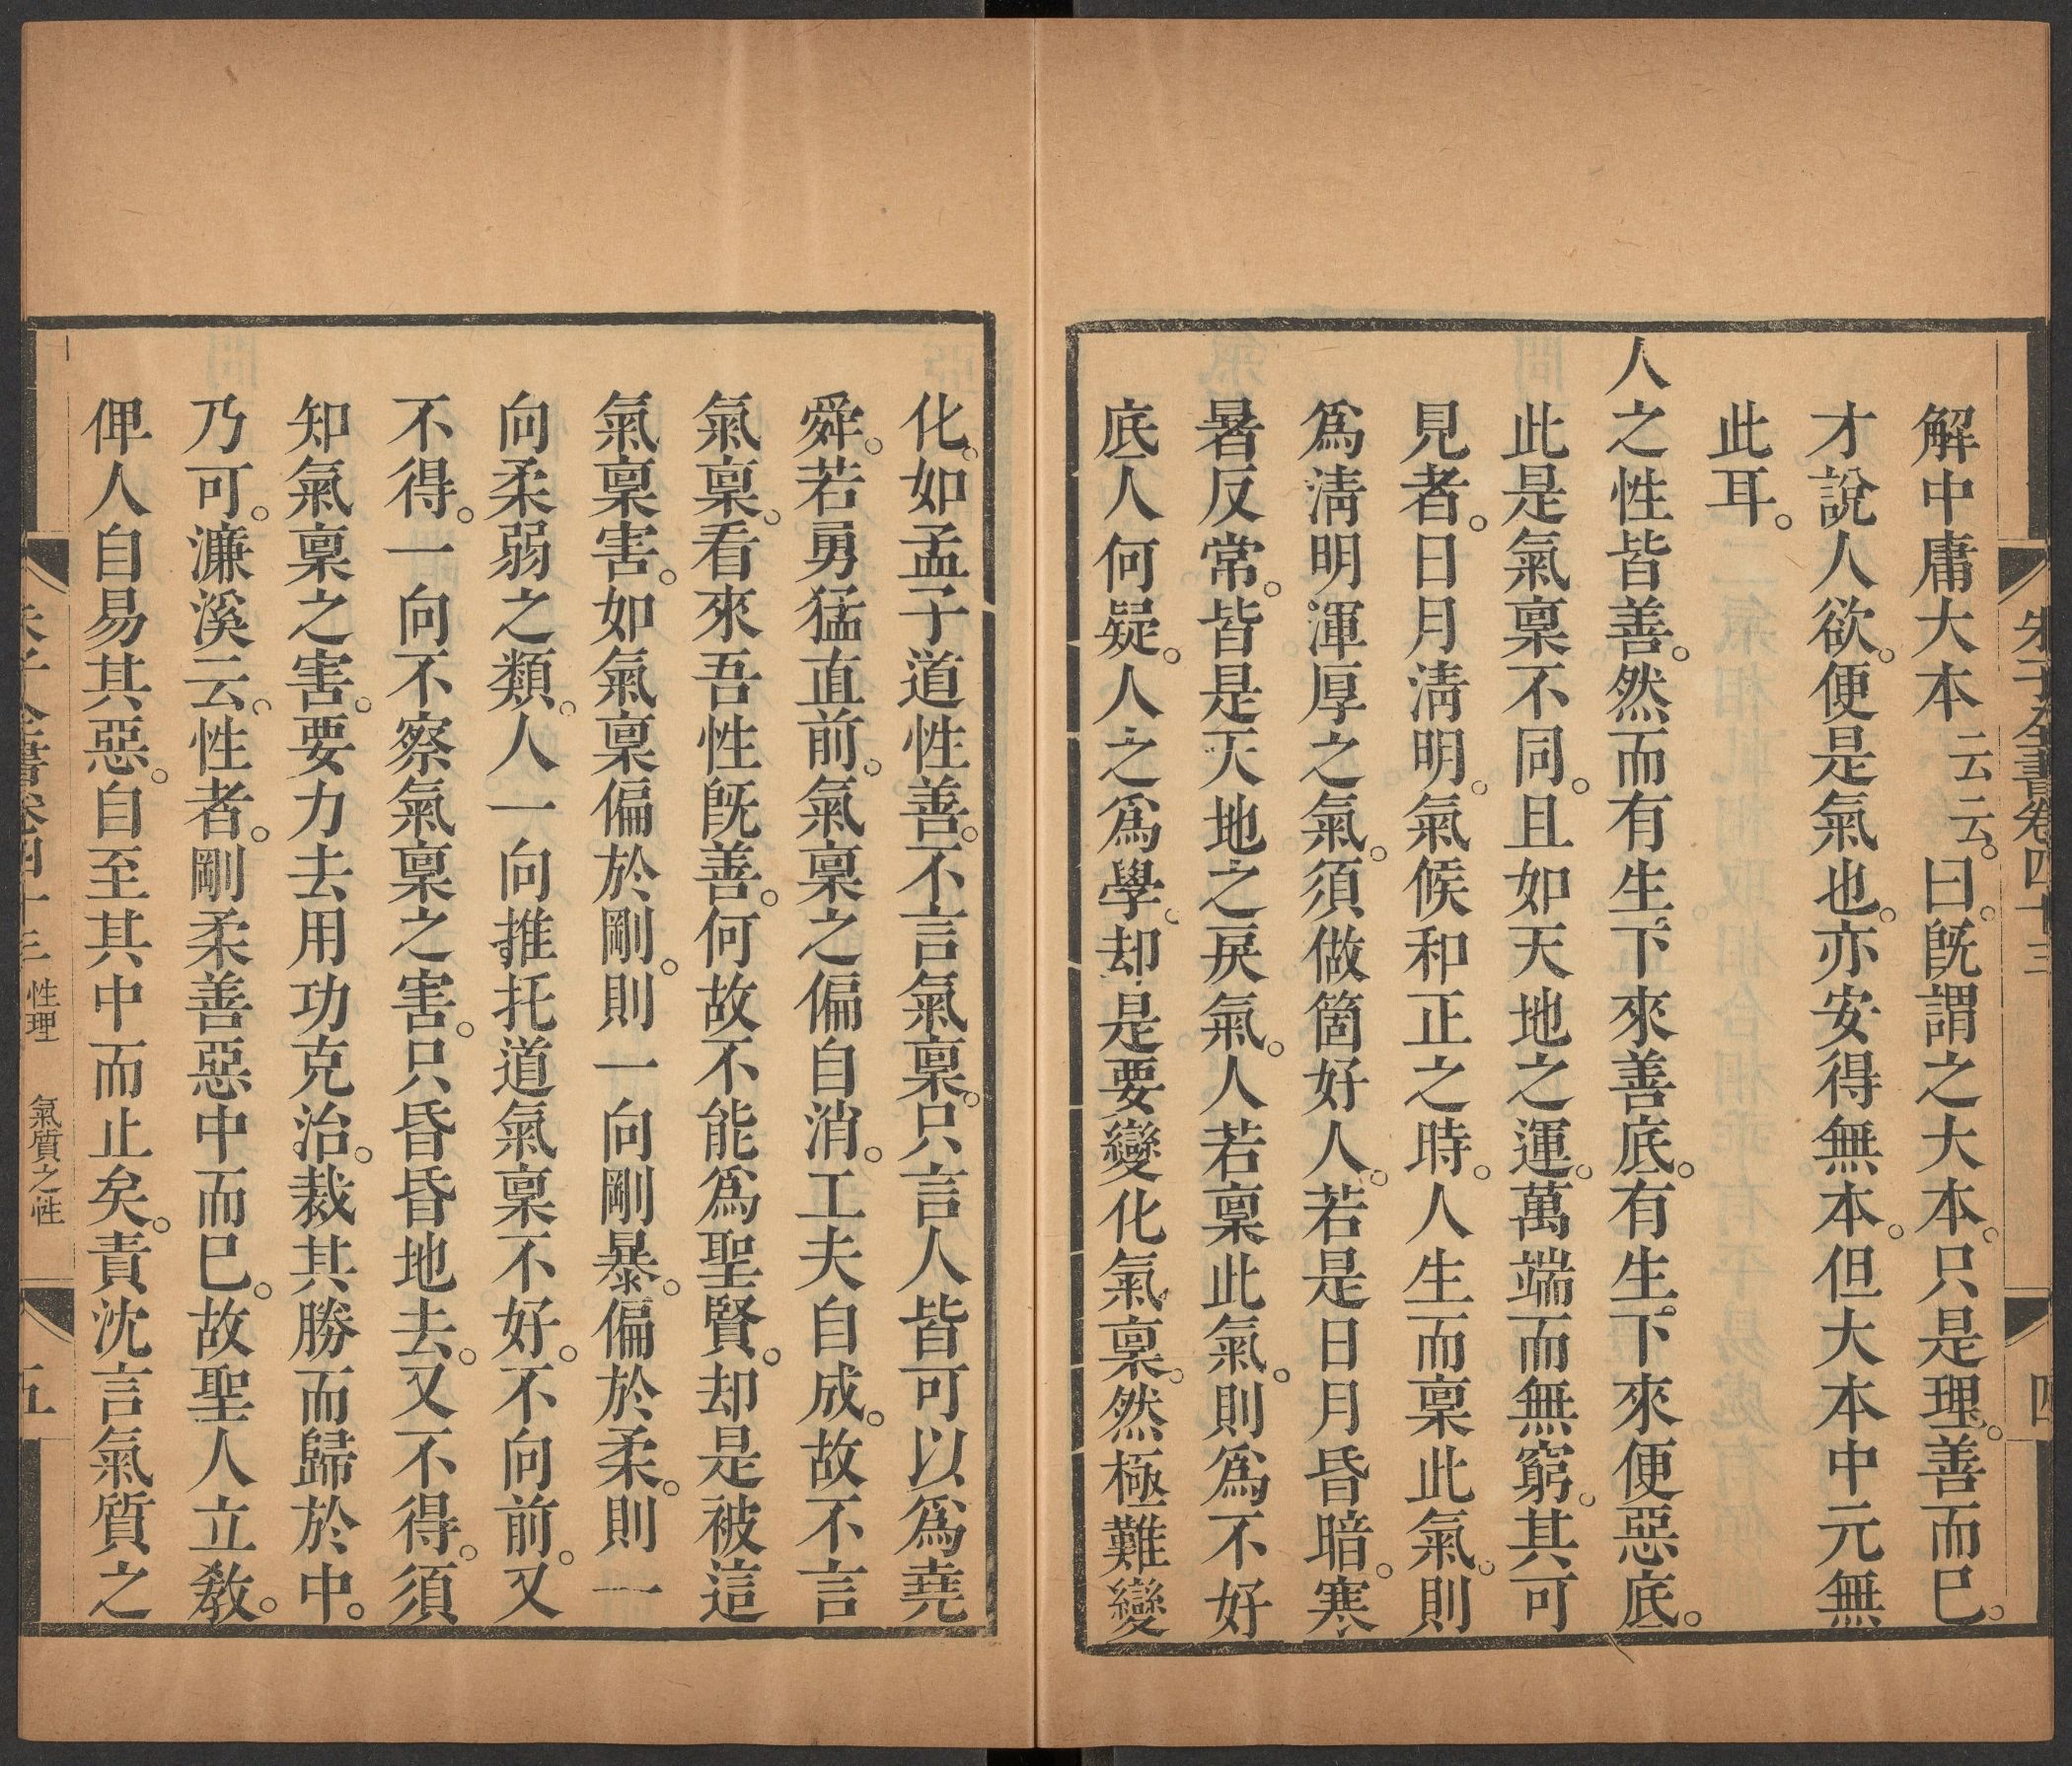 朱子全書卷四十三
四
解中庸大本云云。曰。旣謂之大本。只是理。善而已。
才說人欲。便是氣也。亦安得無本。但大本中元無
此耳。
人之性皆善。然而有生下來善底。有生下來便惡底。
此是氣稟不同。且如天地之運。萬端而無窮。其可
見者。日月淸明。氣候和正之時。人生而稟此氣。則
爲淸明渾厚之氣。須做箇好人。若是日月昏暗。寒
暑反常。皆是天地之戾氣。人若稟此氣。則爲不好
底人何疑。人之爲學。却是要變化氣稟。然極難變
化。如孟子道性善。不言氣稟。只言人皆可以爲堯
舜。若勇猛直前。氣稟之偏自消。工夫自成。故不言
氣稟。看來吾性旣善。何故不能爲聖賢。却是被這
氣稟害。如氣稟偏於剛。則一向剛暴。偏於柔。則一
向柔弱之類。人一向推托道氣稟不好。不向前。又
不得。一向不察氣稟之害。只昏昏地去。又不得。須
知氣稟之害。要力去用功克治。裁其勝而歸於中。
乃可。濂溪云。性者。剛柔善惡中而已。故聖人立敎。
俾人自易其惡。自至其中而止矣。責沈言氣質之
朱子全書卷四十三 性理 氣質之性
五